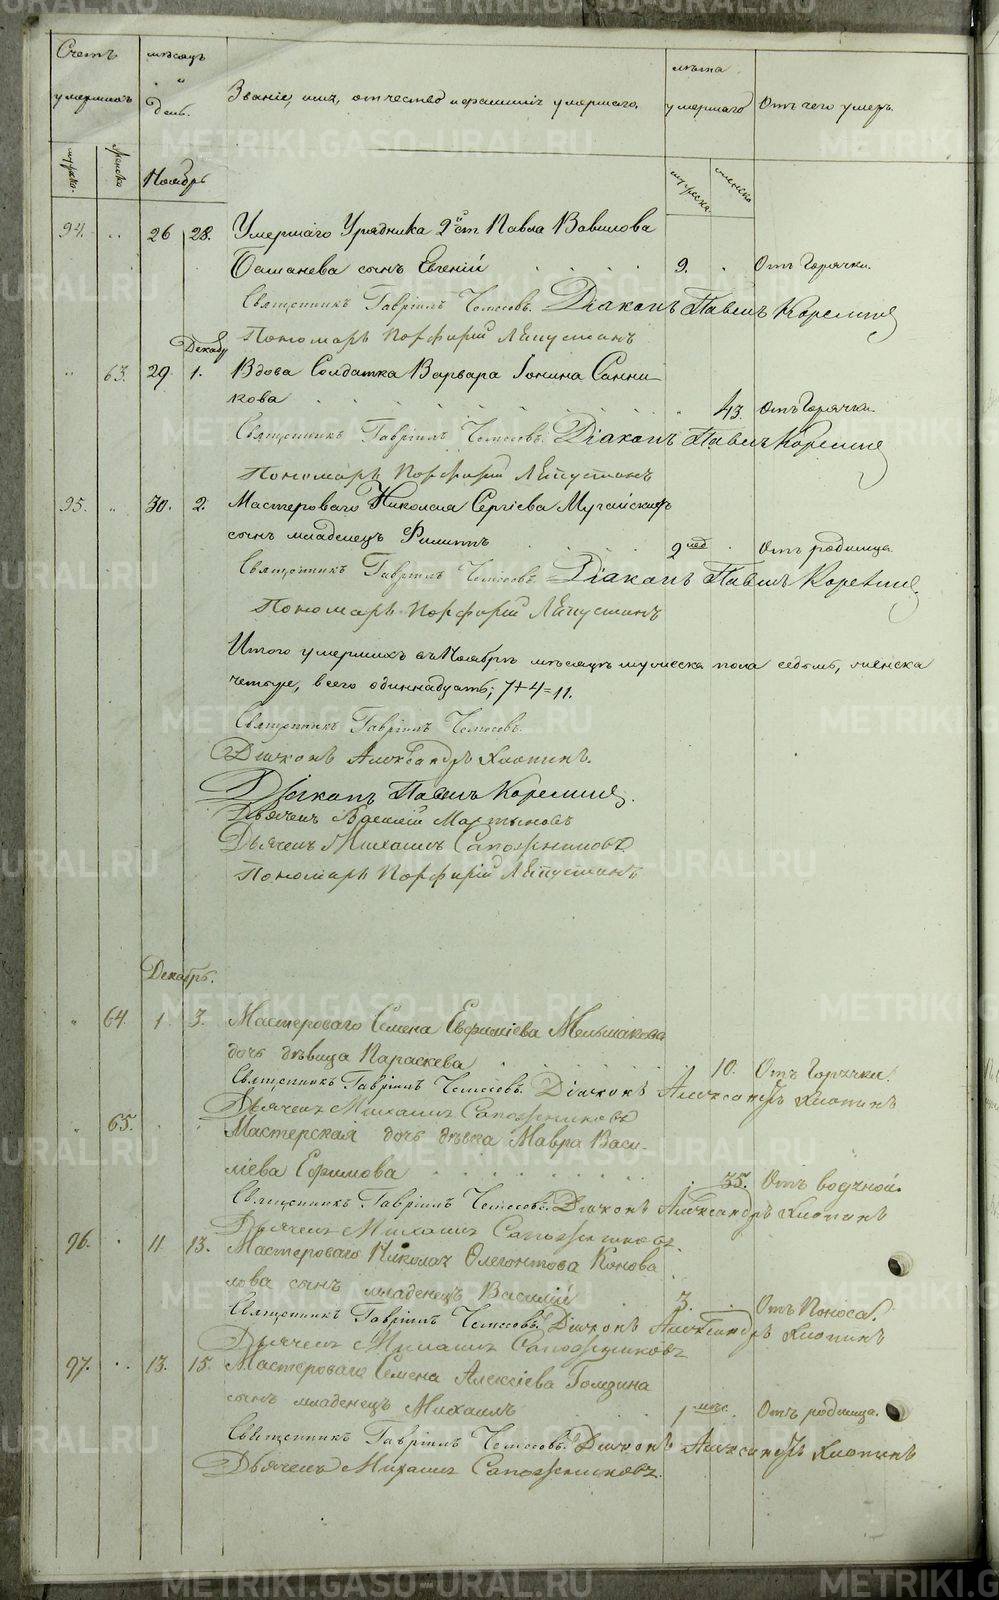 Счетъ умершихъ
мѣсяцъ и день.
Званіе, имя, отчество и фамилія умершаго.
лѣта умершаго
Отъ чего умеръ.
мужска.
женска
Ноябрь
мужеска.
женска
94. 26 28. Умершаго Урядника 2й ст Павла Вавилова
сынъ Евгеній 9. Отъ Горячки.
Священникъ Гавріилъ Діаконъ Павелъ
Пономарь Порфирій
Декабр
63. 29 1. Вдова Солдатка Варвара Іонина Санни-
кова 43. Отъ Горячки.
Священникъ Гавріилъ Діаконъ Павелъ
Пономарь Порфирій
95. 30. 2. Мастероваго Николая Сергіева
сынъ младенецъ Филиппъ 2 нед Отъ родимца.
Священникъ Гавріилъ Діаконъ Павелъ
Пономарь Порфирій
Итого умершихъ въ Ноябрѣ мѣсяцѣ мужеска пола седьмь, женска
четыре, всего одиннадцать; 7+4=11.
Священникъ Гавріилъ
Діаконъ Александръ Хлопинъ.
Діаконъ Павелъ
Дьячекъ Василій Мартыновъ
Дьячекъ Михаилъ Сапожниковъ
Пономарь Порфирій
Декабрь.
64. 1. 3. Мастероваго Семена Евфиміева Меньшакова
дочь дѣвица Параскева 10. Отъ Горячки.
Священникъ Гавріилъ Діаконъ Александръ Хлопинъ
Дьячекъ Михаилъ Сапожниковъ
65. Мастерская дочь дѣвка Мавра Васи-
ліева Ефимова 35. Отъ водяной.
Священникъ Гавріилъ Діаконъ Александръ Хлопинъ
Дьячекъ Михаилъ Сапожниковъ.
96. 11 13. Мастероваго Николая Олегонтова Конова
лова сынъ младенецъ Василій 3. Отъ Поноса.
Священникъ Гавріилъ Діаконъ Александръ Хлопинъ
Дьячекъ Михаилъ Сапожниковъ
97. 13. 15. Мастероваго Семена Алексіева Гомзина
сынъ младенецъ Михаилъ 1 мѣс. Отъ родимца.
Священникъ Гавріилъ Діаконъ Александръ Хлопинъ
Дьячекъ Михаилъ Сапожниковъ.
METRIKI.GASO-URAL.RU